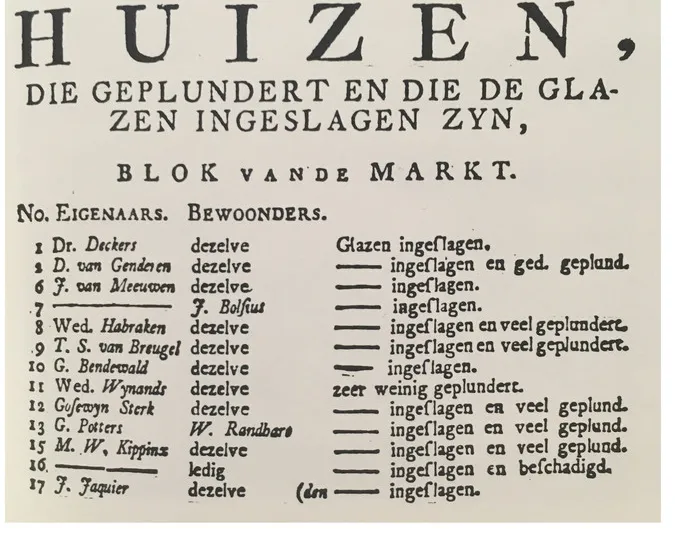 HUIZEN,
DIE GEPLUNDERT EN DIE DE GLA-
ZEN INGESLAGEN ZYN,
BLOK VAN DE MARKT.
No. EIGENAARS. BEWOONDERS.
1 Dr. Deckers dezelve Glazen ingeſlagen.
2 D. van Genderen dezelve —— ingeſlagen en ged. geplund.
6 J. van Meeuwen dezelve —— ingeſlagen.
7 —— J. Bolſius —— ingeſlagen.
8 Wed. Habraken dezelve —— ingeſlagen en veel geplundert.
9 T. S. van Breugel dezelve —— ingeſlagen en veel geplundert.
10 G. Bendewald dezelve —— ingeſlagen.
11 Wed. Wynands dezelve zeer weinig geplundert.
12 Goſewyn Sterk dezelve —— ingeſlagen en veel geplund.
13 G. Potters W. Randhars —— ingeſlagen en veel geplund.
15 M. W. Kippinx dezelve —— ingeſlagen en veel geplund.
16. —— —— ledig —— ingeſlagen en beſchadigd.
17 J. Jaquier dezelve (den —— ingeſlagen.